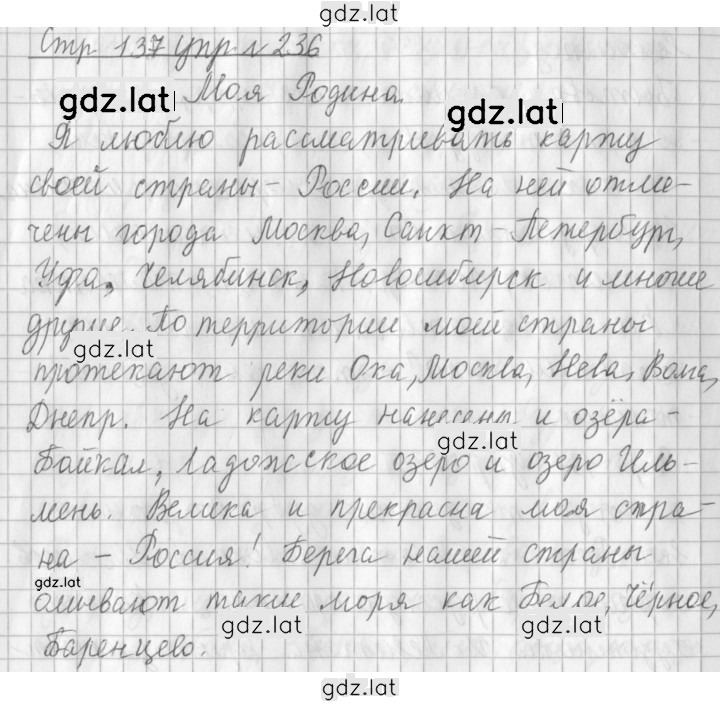 gdz.lat
Стр 137 упр № 236
gdz.lat Моя Родина. gdz.lat
Я люблю рассматривать карту
своей страны - России. На ней отме-
чены города Москва, Санкт-Петербург,
Уфа, Челябинск, Новосибирск и многие
другие. По территории моей страны
gdz.lat
протекают реки Ока, Москва, Нева, Волга,
Днепр. На карту нанесены и озёра -
gdz.lat
Байкал, Ладожское озеро и озеро Иль-
мень. Велика и прекрасна моя стра-
на - Россия! Берега нашей страны
gdz.lat
омывают такие моря как Белое, Чёрное,
gdz.lat gdz.lat
Баренцево.
gdz.lat